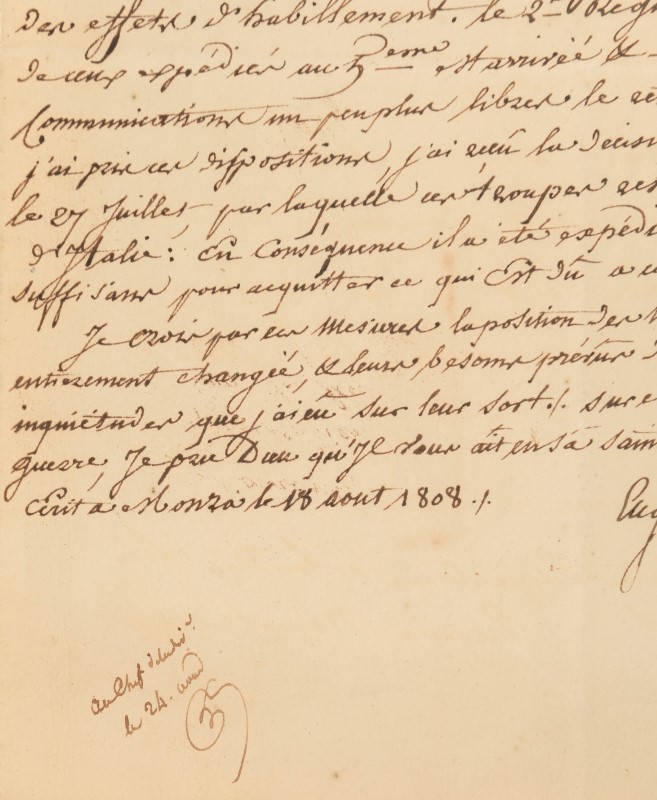 Des effets d'habillement. le 2me Reg
de ceux expédiés au 3eme est arrivée &
Communications un peu plus libres le
j'ai pris ces dispositions, j'ai reçû la décis
le 27 Juillet, par laquelle ces trouper res
d'Italie: En Conséquence il a été expédi
suffisans pour acquitter ce qui Est dû a
Je crois par ces Mesures la position des
entierement changée, & leurs besoins prévus
inquiétudes que j'ai eû sur leur sort /. sur
guerre, Je prie Dieu qu'Jl vous ait en Sa sain
Ecrit a Monza le 18 aout 1808 /.
Eug
au Chef
le 24. août